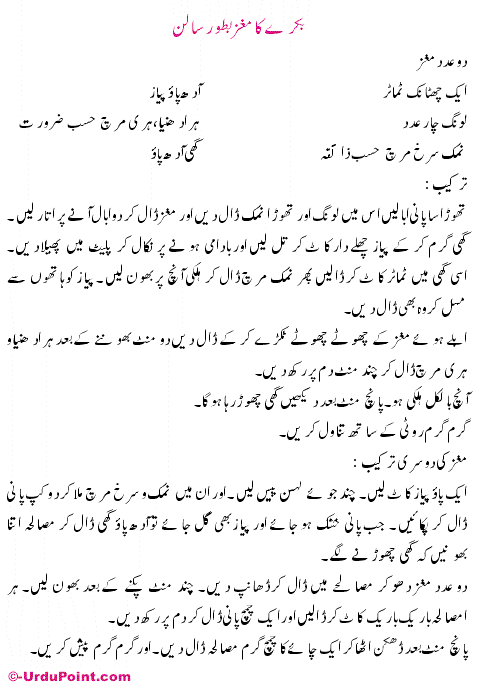 بکرے کا مغز بطور سالن
دو عدد مغز
ایک چھٹانک ٹماٹر آدھ پاؤ پیاز
لونگ چار عدد ہرا دھنیا، ہری مرچ حسب ضرورت
نمک سرخ مرچ حسب ذائقہ گھی آدھ پاؤ
ترکیب :
تھوڑا سا پانی ابالیں اس میں لونگ اور تھوڑا نمک ڈال دیں اور مغز ڈال کر دو ابال آنے پر اتار لیں۔
گھی گرم کر کے پیاز چھلے دار کاٹ کر تل لیں اور بادامی ہونے پر نکال کر پلیٹ میں پھیلا دیں۔
اسی گھی میں ٹماٹر کاٹ کر ڈالیں پھر نمک مرچ ڈال کر ہلکی آنچ پر بھون لیں۔ پیاز کو ہاتھوں سے
مسل کر وہ بھی ڈال دیں۔
ابلے ہوئے مغز کے چھوٹے چھوٹے ٹکڑے کر کے ڈال دیں دو منٹ بھوننے کے بعد ہرا دھنیا و
ہری مرچ ڈال کر چند منٹ دم پر رکھ دیں۔
آنچ بالکل ہلکی ہو۔ پانچ منٹ بعد دیکھیں گھی چھوڑ رہا ہوگا۔
گرم گرم روٹی کے ساتھ تناول کریں۔
مغز کی دوسری ترکیب :
ایک پاؤ پیاز کاٹ لیں۔ چند جوئے لہسن پیس لیں۔ اور ان میں نمک و سرخ مرچ ملا کر دو کپ پانی
ڈال کر پکائیں۔ جب پانی خشک ہو جائے اور پیاز بھی گل جائے تو آدھ پاؤ گھی ڈال کر مصالحہ اتنا
بھونیں کہ گھی چھوڑنے لگے۔
دو عدد مغز دھو کر مصالحے میں ڈال کر ڈھانپ دیں۔ چند منٹ پکنے کے بعد بھون لیں۔ ہر
ا مصالحہ باریک باریک کاٹ کر ڈالیں اور ایک چمچ پانی ڈال کر دم پر رکھ دیں۔
پانچ منٹ بعد ڈھکن اٹھا کر ایک چائے کا چمچ گرم مصالحہ ڈال دیں۔ اور گرم گرم پیش کریں۔
©-UrduPoint.com